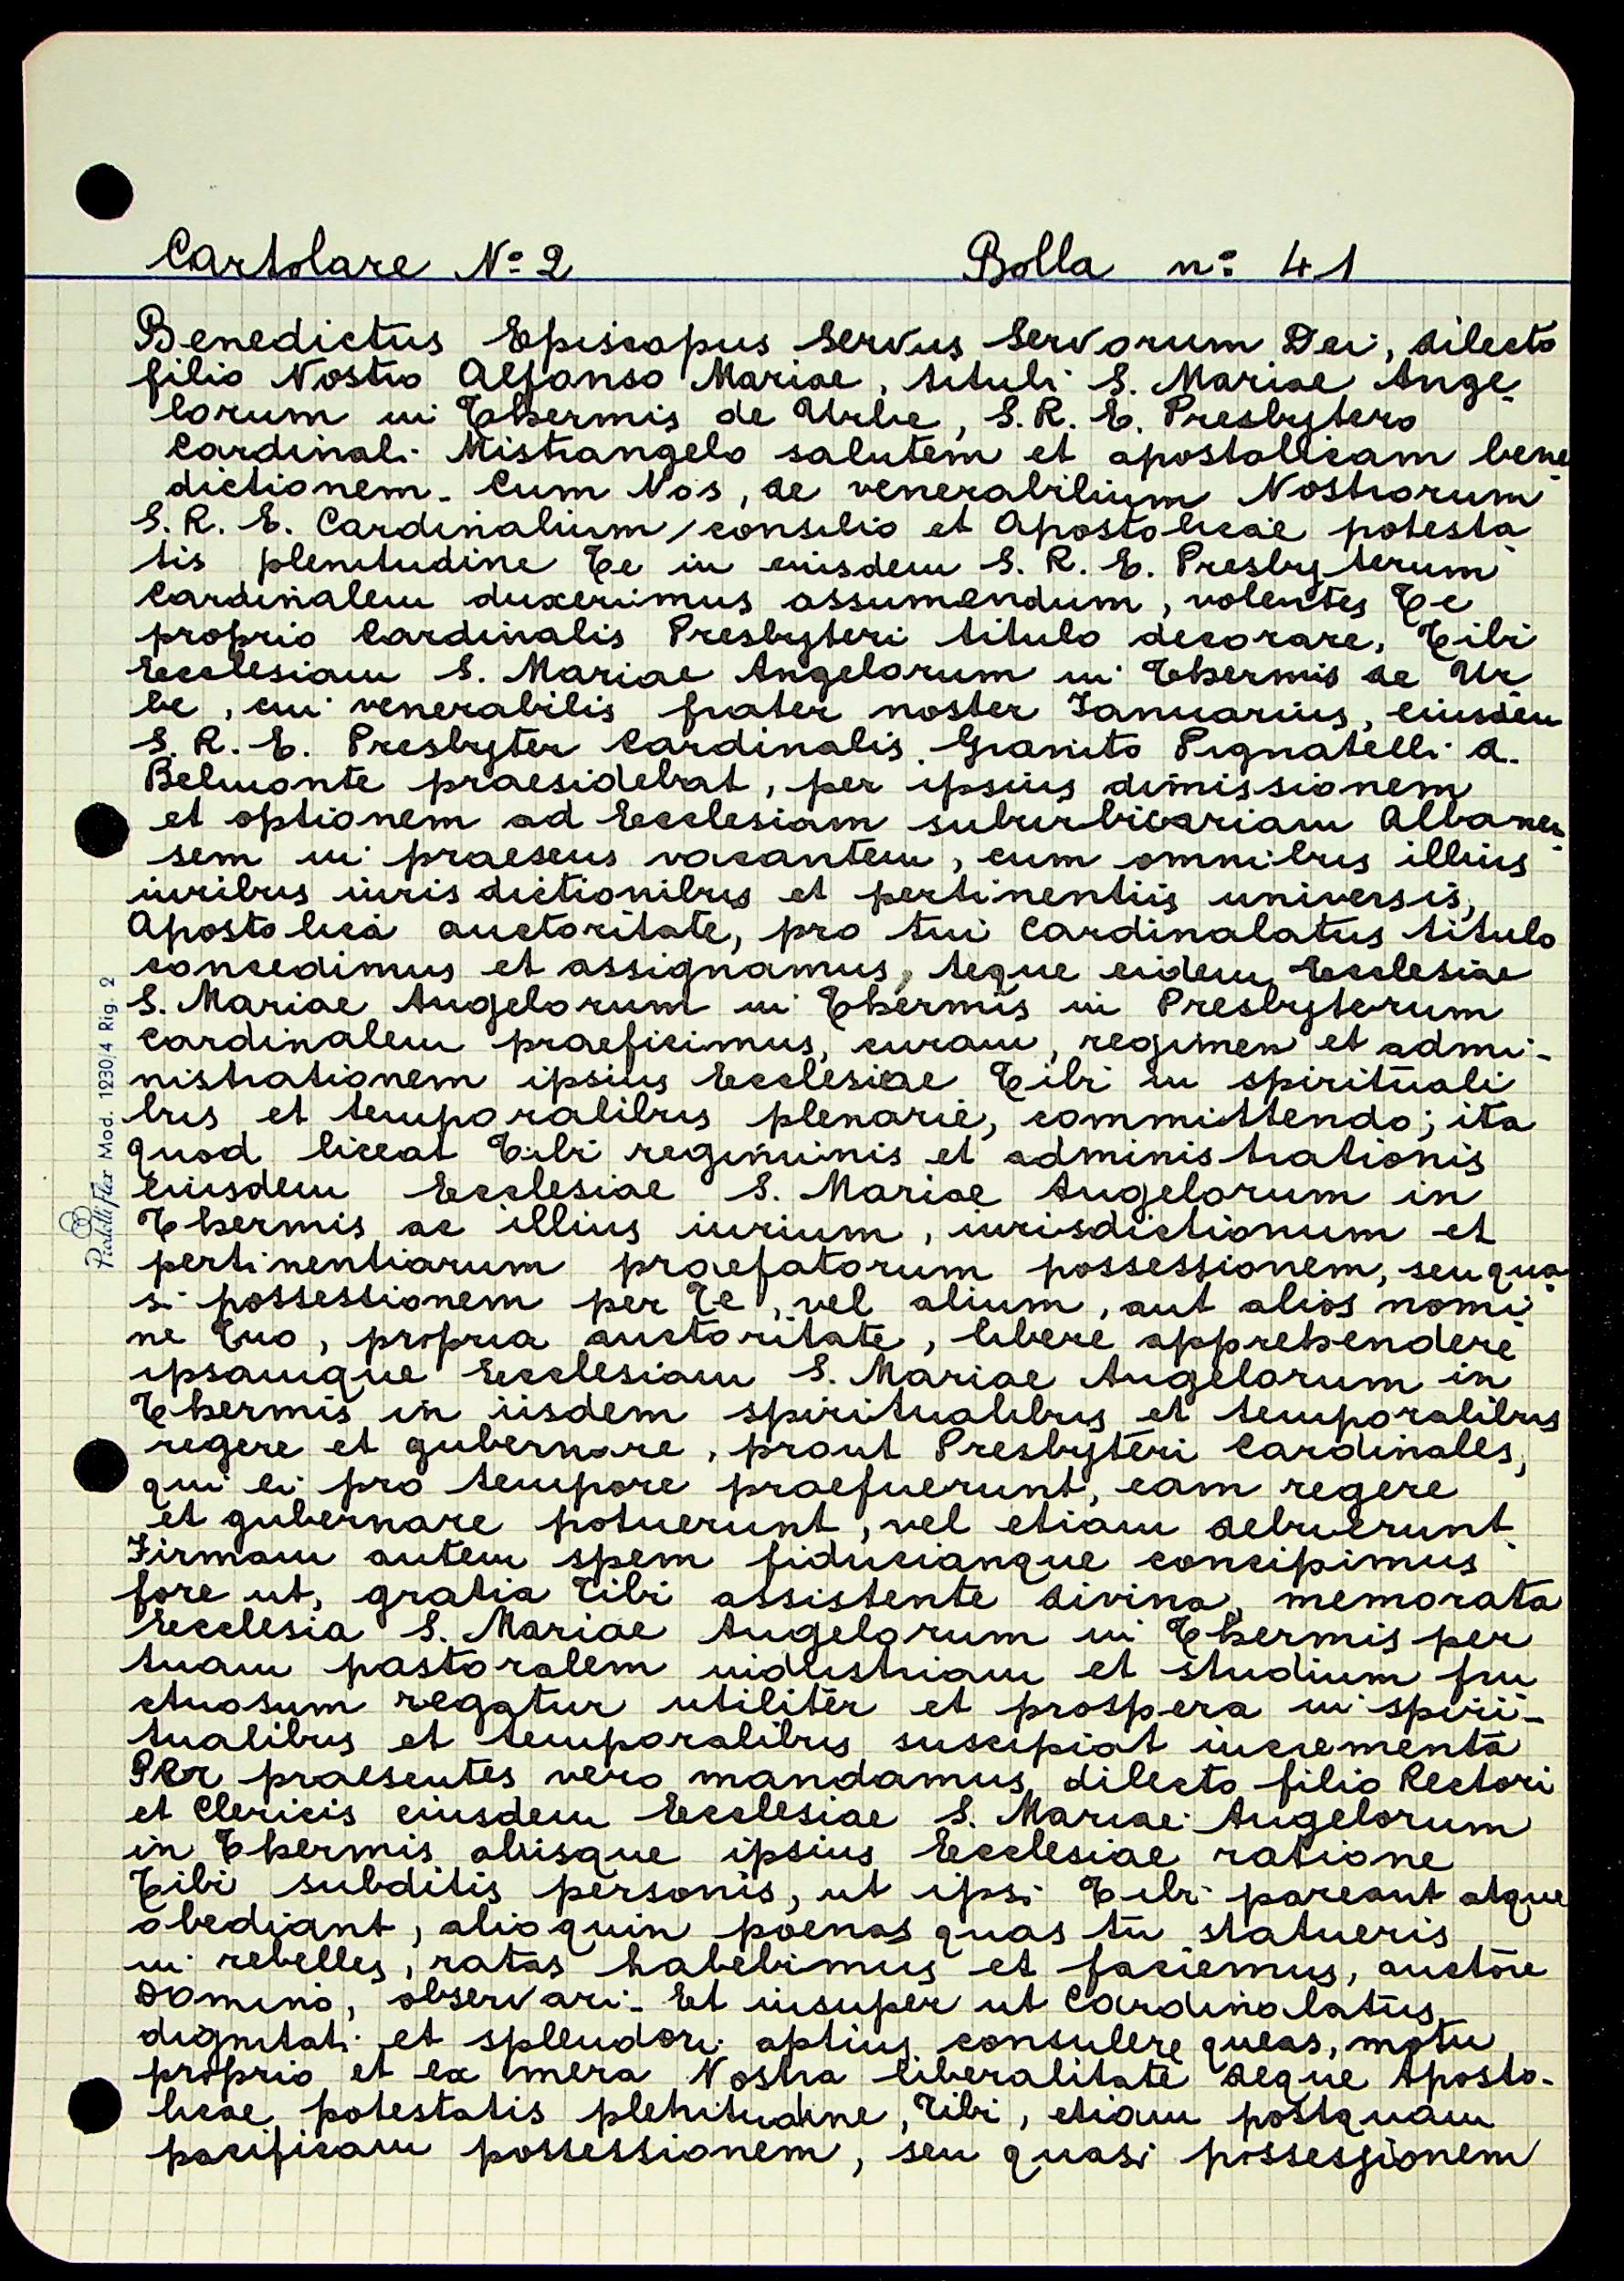 Cartolare Nº 2 Bolla nº 41
Benedictus Episcopus Servus Servorum Dei, dilecto
filio Nostro Alfonso Mariae, tituli S. Mariae Ange-
lorum in Thermis de Urbe, S. R. E. Presbytero
Cardinali Mistrangelo salutem et apostolicam bene
dictionem. Cum Nos, de venerabilium Nostrorum
S. R. E. Cardinalium consilio et Apostolicae potesta
tis plenitudine Te in eiusdem S. R. E. Presbyterum
Cardinalem duxerimus assumendum, volentes Te
proprio Cardinalis Presbyteri titulo decorare, Tibi
Ecclesiam S. Mariae Angelorum in Thermis de Ur
be, cui venerabilis frater noster Ianuarius, eiusdem
S. R. E. Presbyter Cardinalis Granito Pignatelli di
Belmonte praesidebat, per ipsius dimissionem
et optionem ad Ecclesiam suburbicariam Albanen
sem in praesens vacantem, cum omnibus illius
iuribus iuris dictionibus et pertinentiis universis,
Apostolica auctoritate, pro tui Cardinalatus titulo
concedimus et assignamus, teque eidem Ecclesiae
S. Mariae Angelorum in Thermis in Presbyterum
Cardinalem praeficimus, curam, regimen et admi-
nistrationem ipsius Ecclesiae Tibi in spirituali
bus et temporalibus plenarie, committendo; ita
quod liceat Tibi regiminis et administrationis
Eiusdem Ecclesiae S. Mariae Angelorum in
Thermis ac illius iurium, iurisdictionum et
pertinentiarum praefatorum possessionem, seu qua
si possessionem per Te, vel alium, aut alios nomi
ne Tuo, propria auctoritate, libere apprehendere
ipsamque Ecclesiam S. Mariae Angelorum in
Thermis in iisdem spiritualibus et temporalibus
regere et gubernare, prout Presbyteri Cardinales,
qui ei pro tempore praefuerunt, eam regere
et gubernare potuerunt, vel etiam debuerunt.
Firmam autem spem fiducianque concipimus
fore ut, gratia Tibi assistente divina, memorata
Ecclesia S. Mariae Angelorum in Thermis per
tuam pastoralem industriam et studium fru
ctuosum regatur utiliter et prospera in spiri-
tualibus et temporalibus suscipiat incrementa
Per praesentes vero mandamus dilecto filio Rectori
et Clericis eiusdem Ecclesiae S. Mariae Angelorum
in Thermis aliisque ipsius Ecclesiae ratione
Tibi subditis personis, ut ipsi Tibi pareant atque
obediant, alioquin poenas quas tu statueris
in rebelles, ratas habebimus et faciemus, auctore
Domino, observari. Et insuper ut Cardinalatus
dignitati et splendori aptius consulere queas, motu
proprio et ex mera Nostra liberalitate deque Aposto-
licae potestatis plenitudine, Tibi, etiam postquam
pacificam possessionem, seu quasi possessionem
Pialettiflex Mod. 1230/4 Rig. 2